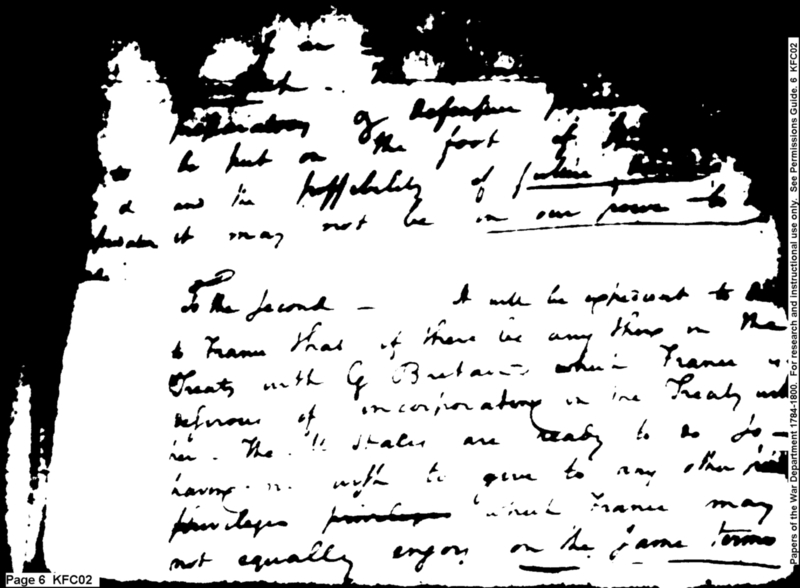 of an
preparatory of Defensive
to be put on the foot of
d and the possibility of
it may not be in our power to
To the second — It will be expedient to
to France that if there be any thing in the
Treaty with G Britain which France is
desirous of incorporating in the Treaty with
her. The U States are ready to do so —
having no wish to give to any other
privileges privileges which France may
not equally enjoy on the same terms
Page 6 KFC02
Papers of the War Department 1784-1800. For research and instructional use only. See Permissions Guide. 6 KFC02